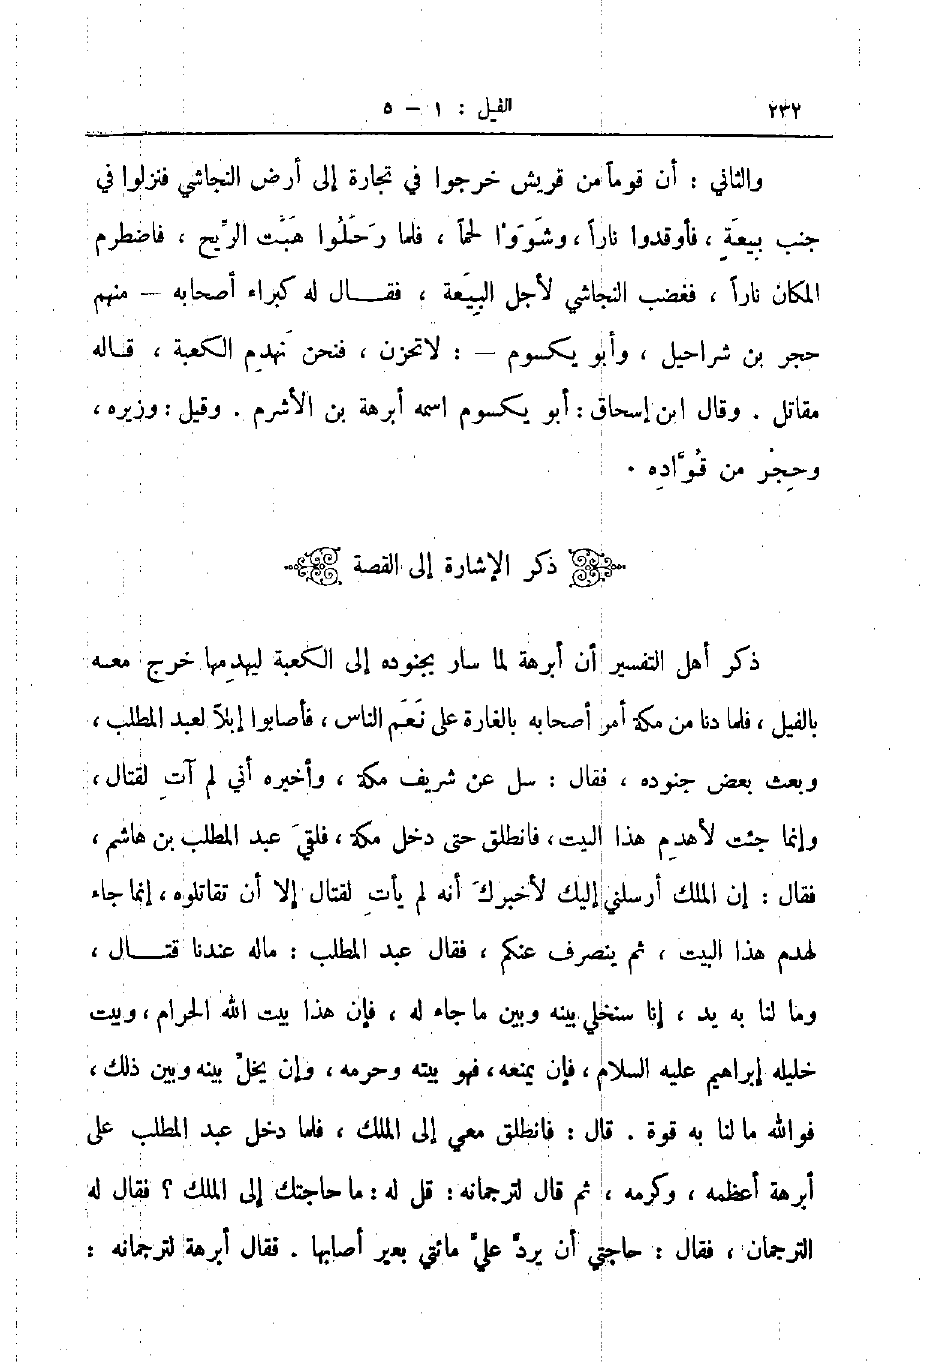 ٢٣٢ الفيل : ١ – ٥
والثاني : أن قوماً من قريش خرجوا في تجارة إلى أرض النجاشي فنزلوا في
جنب بِيعَةٍ ، فأوقدوا ناراً ، وشَوَوْا لحماً ، فلما رَحَلُوا هَبَّت الرِّيح ، فاضطرم
المكان ناراً ، فغضب النجاشي لأجل البِيَعة ، فقـــال له كبراء أصحابه – منهم
حجر بن شراحيل ، وأبو يكسوم – : لاتحزن ، فنحن نَهدِم الكعبة ، قـاله
مقاتل . وقال ابن إسحاق : أبو يكسوم اسمه أبرهة بن الأشرم . وقيل : وزيره ،
وحِجْر من قُوَّادِه .
ذكر الإشارة إلى القصة
ذكر أهل التفسير أن أبرهة لما سار بجنوده إلى الكعبة ليهدِمها خرج معـه
بالفيل ، فلما دنا من مكة أمر أصحابه بالغارة على نَعَم الناس ، فأصابوا إبلاً لعبد المطلب ،
وبعث بعض جنوده ، فقال : سل عن شريف مكة ، وأخبره أني لم آتِ لقتال ،
وإنما جئت لأهدِم هذا البيت ، فانطلق حتى دخل مكة ، فلقيَ عبد المطلب بن هاشم ،
فقال : إن الملك أرسلني إليك لأخبركَ أنه لم يأتِ لقتال إلا أن تقاتلوه ، إنما جاء
لهدم هذا البيت ، ثم ينصرف عنكم ، فقال عبد المطلب : ماله عندنا قتـــال ،
وما لنا به يد ، إنا سنخلي بينه وبين ما جاء له ، فإن هذا بيت الله الحرام ، وبيت
خليله إبراهيم عليه السلام ، فإن يمنعه ، فهو بيته وحرمه ، وإن يخلّ بينه وبين ذلك ،
فوالله ما لنا به قوة . قال : فانطلق معي إلى الملك ، فلما دخل عبد المطلب على
أبرهة أعظمه ، وكرمه ، ثم قال لترجمانه : قل له : ما حاجتك إلى الملك ؟ فقال له
الترجمان ، فقال : حاجتي أن يردَّ عليَّ مائتي بعير أصابها . فقال أبرهة لترجمانه :